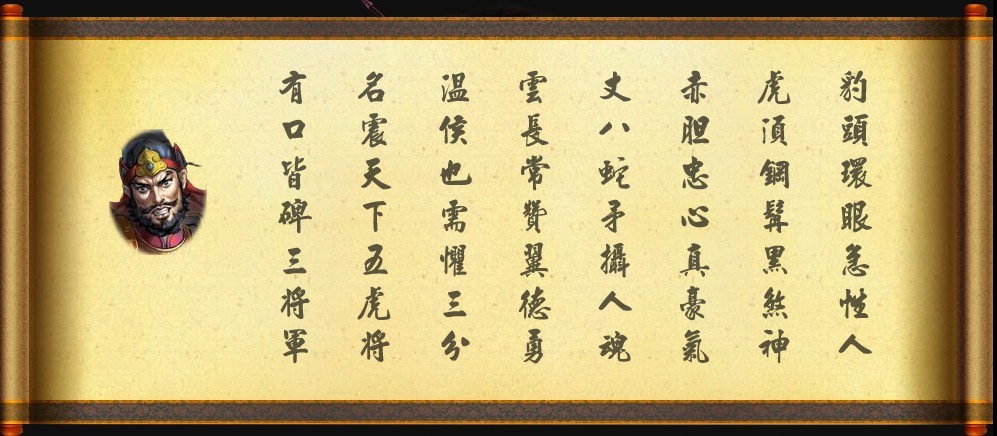 豹頭環眼急性人
虎須鋼髯黑煞神
赤胆忠心真豪氣
丈八蛇矛攝人魂
雲長常贊翼德勇
温侯也需懼三分
名震天下五虎将
有口皆碑三将軍